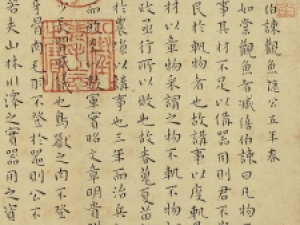 伯諫觀魚隱公五年春
如棠觀魚者臧僖伯諫曰凡物
事其材不足以備器用則君不
民於軌物者也故講事以度軌
材以章物采謂之物不軌不物
政亟行所以敗也故春蒐夏苗
於農隙以講事也三年而治兵
而以數軍實昭文章明貴
少長習威儀也鳥獸之肉不登
牙骨角毛羽不登於器則公不
若夫山林川澤之實器用之資